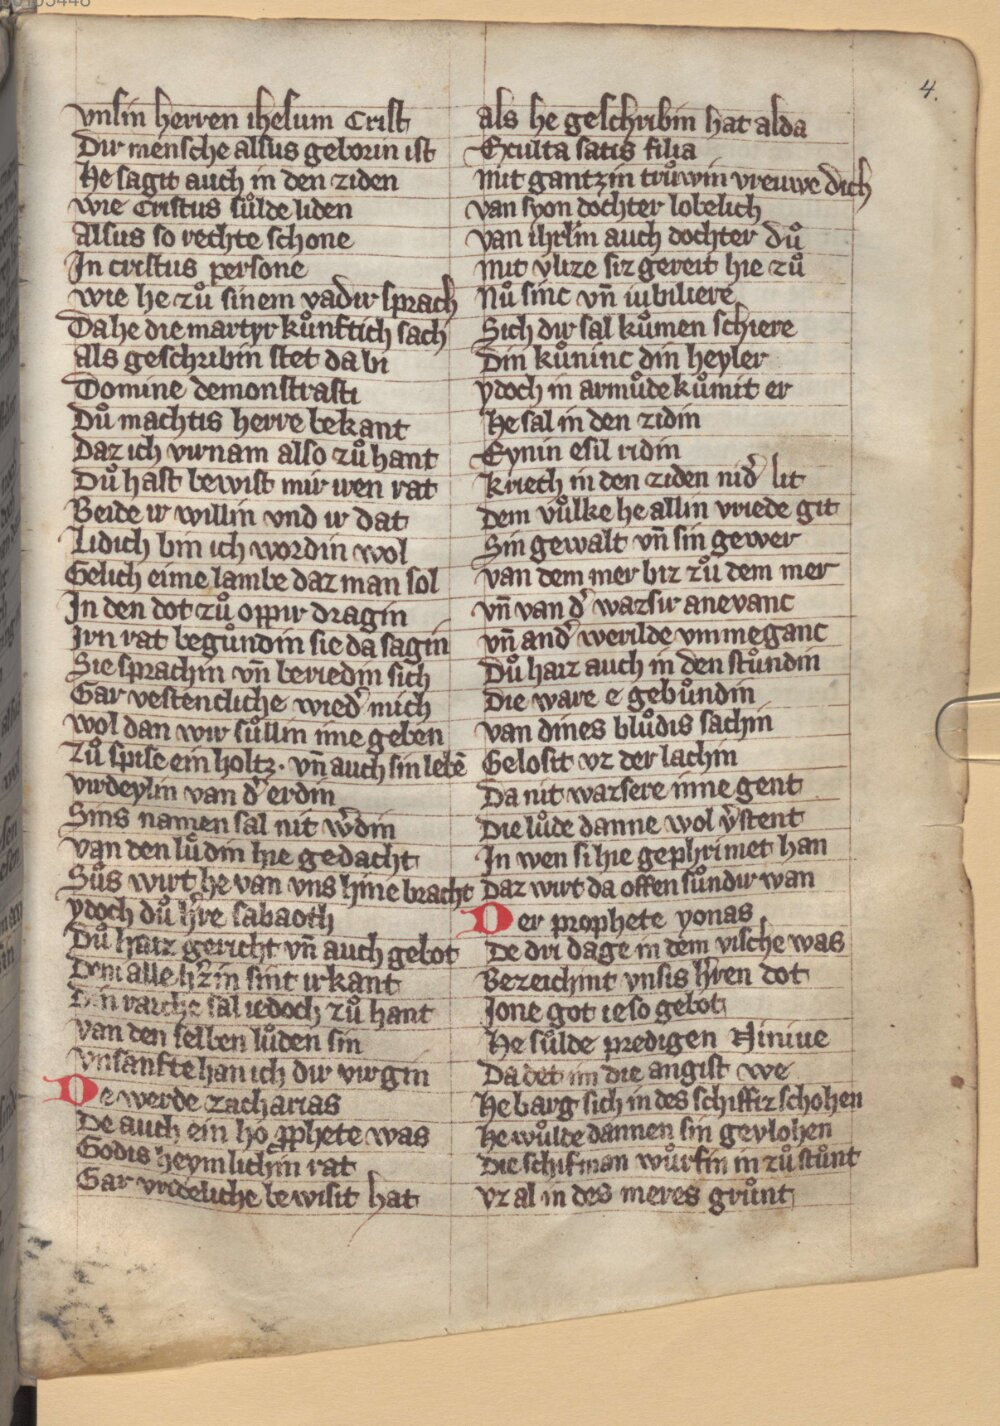 4.
vnsin herren ihesum Crist
Dir mensche alsus geborin ist
He sagit auch in den ziden
wie Cristus suͦlde liden
Alsus so rechte schone
In cristus persone
wie he zuͦ sinem vadir sprach
Da he die martyr kuͦnftich sach
Als geschribin stet da bi
Domine demonstrasti
Duͦ machtis herre bekant
Daz ich virnam also zuͦ hant
Duͦ hast bewist mir iren rat
Beide ir willin vnd ir dat
Lidich bin ich wordin wol
Gelich eime lambe daz man sol
In den dot zuͦ oppir dragin
Irn rat beguͦndin sie da sagin
Sie sprachin vn̄ beriedin sich
Gar vestencliche wied̾ mich
wol dan wir suͦllin ime geben
Zuͦ spise ein holtz · vn̄ auch sin lebē
virdeylin van d̾ erdin
Sins namen sal nit w̾din
van den luͦdin hie gedacht
Suͦs wirt he van vns hine bracht
ydoch duͦ h̾re sabaoth
Duͦ haiz gericht vn̄ auch gebot
Dem alle h̾zin sint irkant
Din rache sal iedoch zuͦ hant
van den selben luͦden sin
vnsanfte han ich dir virgin
De werde zacharias
De auch ein ho ꝓphete was
Godis heymlichin rat
Gar vrideliche bewisit hat
als he geschribin hat alda
Exulta satis filia
mit gantzin truͦwin vreuwe dich
van syon dochter lobelich
van ihrl̄m auch dochter duͦ
mit vlize siz gereit hie zuͦ
Nuͦ sinc vn̄ iubiliere
Sich dir sal kuͦmen schiere
Din kuͦninc din heyler
ydoch in armuͦde kuͦmit er
He sal in den zidin
Eynin esil ridin
kriech in den ziden nid̾ lit
Dem vuͦlke he allin vriede git
Sin gewalt vn̄ sin gewer
van dem mer biz zuͦ dem mer
vn̄ van d̾ wazsir anevanc
vn̄ and̾ werilde vmmeganc
Duͦ haiz auch in den stuͦndin
Die ware e gebuͦndin
van dines bluͦdis sachin
Gelosit vz der lachin
Da nit wazsere inne gent
Die luͦde danne wol v̾stent
In wen si hie gephrimet han
Daz wirt da offen suͦndir wan
Der prophete yonas
De dri dage in dem vische was
Bezeichint vnsis h̾ren dot
Jone got ieso gebot
He suͦlde predigen Niniue
Da det im die angist we
He barg sich in des schiffiz schohen
He wuͦlde dannen sin gevlohen
Die schifman wuͦrfin in zuͦ stuͦnt
vz al in des meres gruͦnt